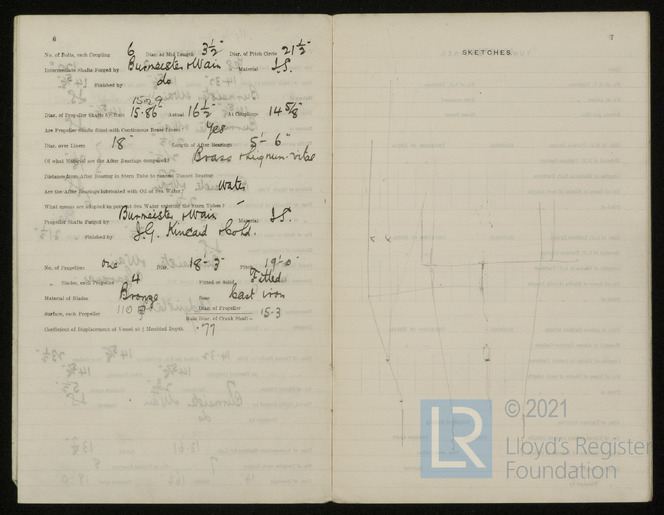 6
No. of Bolts, each Coupling 6 Diar. at Mid Length 3½" Diar. of Pitch Circle 21½"
Intermediate Shafts Forged by Burmeister & Wain Material I.S.
Finished by do
15.29
Diar. of Propeller Shafts by Rule 15.86 Actual 16½" At Couplings 14⅝"
Are Propeller Shafts fitted with Continuous Brass Liners? Yes
Diar. over Liners 18" Length of After Bearings 5'-6"
Of what Material are the After Bearings composed? Brass & Lignum-vitae
Distance from After Bearing in Stern Tube to nearest Tunnel Bearing
Are the After Bearings lubricated with Oil or Sea Water? Water
What means are adopted to prevent Sea Water entering the Stern Tubes? –
Propeller Shafts Forged by Burmeister & Wain Material I.S.
Finished by J.G. Kincaid & Co Ld.
No. of Propellers one Diar. 18'-3" Pitch 19'-0"
Blades, each Propeller 4 Fitted or Solid Fitted
Material of Blades Bronze Boss Cast iron
Surface, each Propeller 110 Diam. of Propeller
Rule Diar. of Crank Shaft = 15.3
Coefficient of Displacement of Vessel at ¾ Moulded Depth .77
7
SKETCHES.
LR
© 2021
Lloyd's Register
Foundation